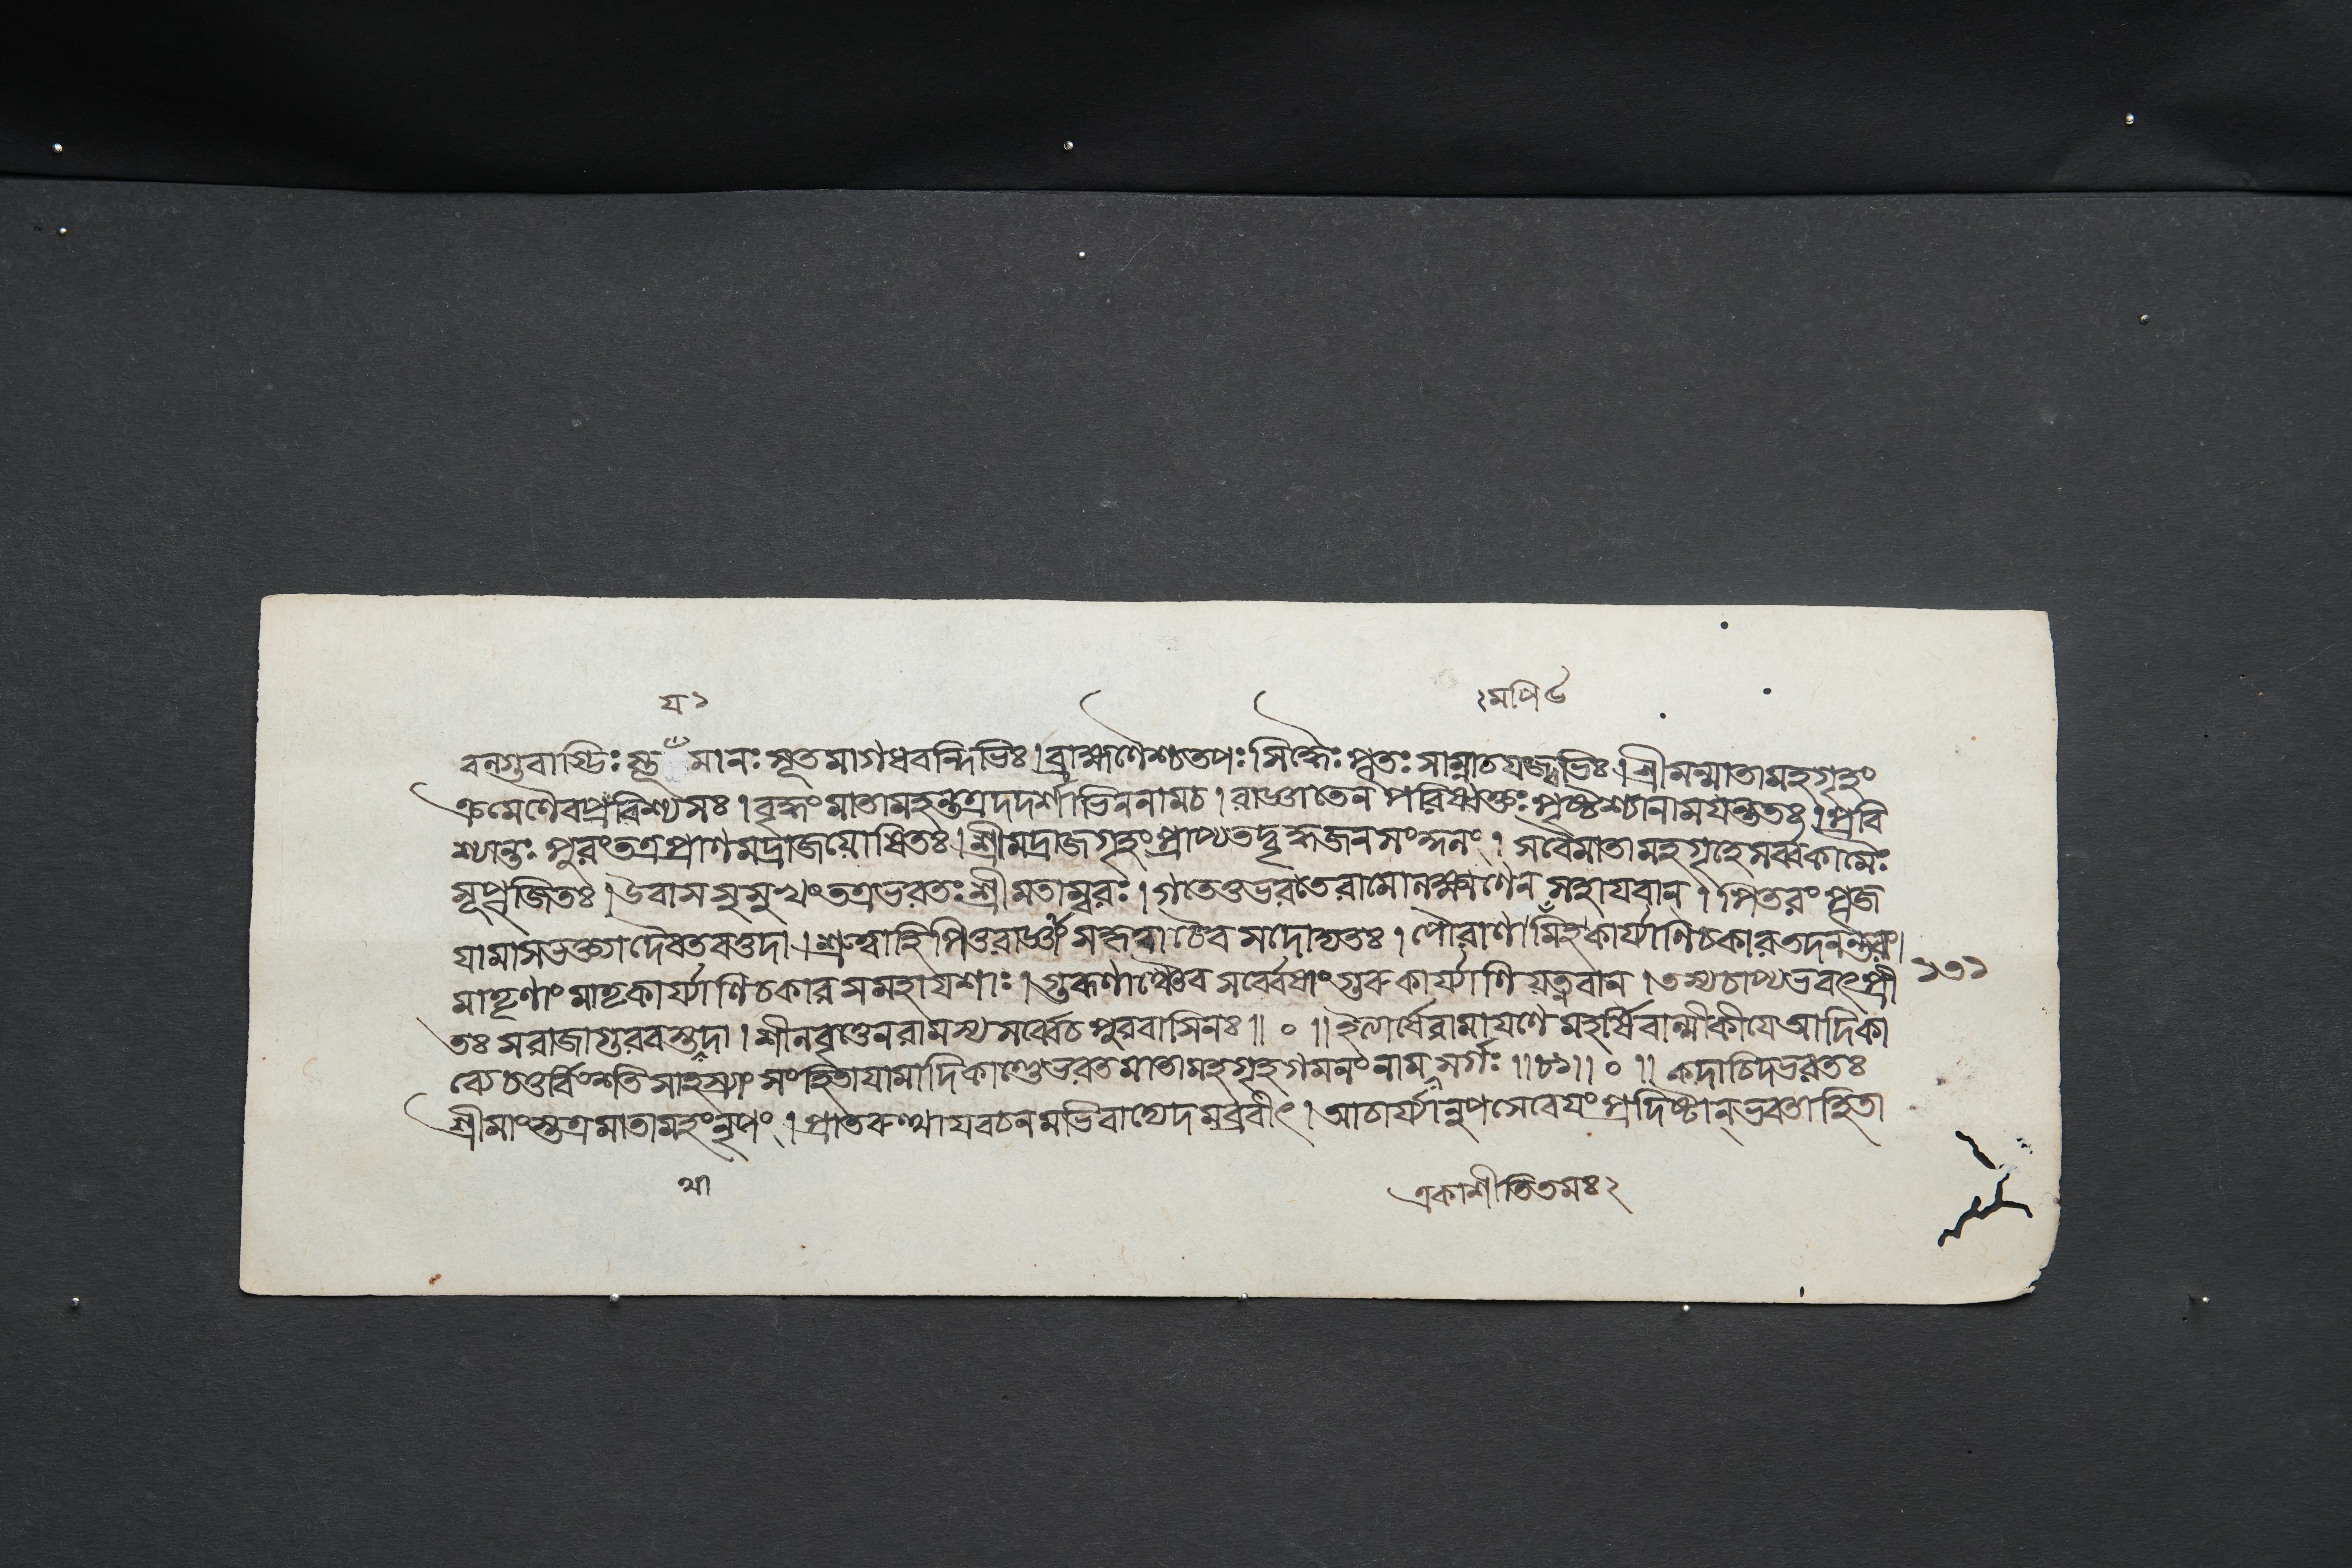 য ১
২মপি ৫
বল্গুবাগ্ভিঃ স্তূ মানঃ সূতমাগধবন্দিভিঃ। ব্রাহ্মণৈশ্চতপঃসিদ্ধৈঃ প্লুতঃ সাম্নাচযজ্বভিঃ। শ্রীমন্মাতামহগৃহং
ক্রমেণৈবপ্রবিশ্য সঃ। বৃদ্ধং মাতামহন্তত্রদদর্শাভিননামচ। রাজ্ঞাতেন পরিষ্বক্তঃ পৃষ্টশ্চানাময়ন্ততঃ। প্রবি
শ্যান্তঃ পুরংতত্রপ্রাণমদ্রাজযোষিতঃ। শ্রীমদ্রাজগৃহংপ্রাপ্যতদ্বৃদ্ধজনসং নং। সবৈমাতামহগৃহেসর্ব্বকামৈঃ
সুপূজিতঃ। উবাসসুসুখংতত্রভরতঃ শ্রীমতাম্বরঃ। গতেতুভরতেরামোলক্ষ্মণেন সহাযবান। পিতরং পূজ
যামাসভক্ত্যাদৈবতবত্তদা। শ্রুত্বাহিপিতুরাজ্ঞাং সোদ্যতঃ। পৌরাণামিহকার্য্যাণিচকারতদনন্তরং।
মাতৃণাং মাতৃকার্য্যাণিচকার সমহাযশাঃ। গুরূণাঞ্চৈব সর্ব্বেষাং গুরুকার্য্যাণিযত্নবান। তস্যচাপ্যভবৎপ্রী ১৩১
তঃ সরাজাগুরবস্তদা। শীলবৃত্তেনরামস্য সর্ব্বেচপুরবাসিনঃ॥ ০ ॥ ইত্যার্ষেরামাযণে মহর্ষিবাল্মীকীযে আদিকা
ব্যেচতুর্বিংশতিসাহস্র্যাং সংহিতাযামাদিকাণ্ডেভরতমাতামহগৃহগমনংনাম সর্গঃ ॥৮১॥ ০ ॥ কদাচিদ্ভরতঃ
শ্রীমাংস্তত্রমাতামহংনৃপং। প্রাতরুত্থাযবচনমভিবাদ্যেদমব্রবীৎ। আচার্য্যানুপসেবেযং প্রদিষ্টান্ভবতাহিতা
থা
একাশীতিতমঃ ২